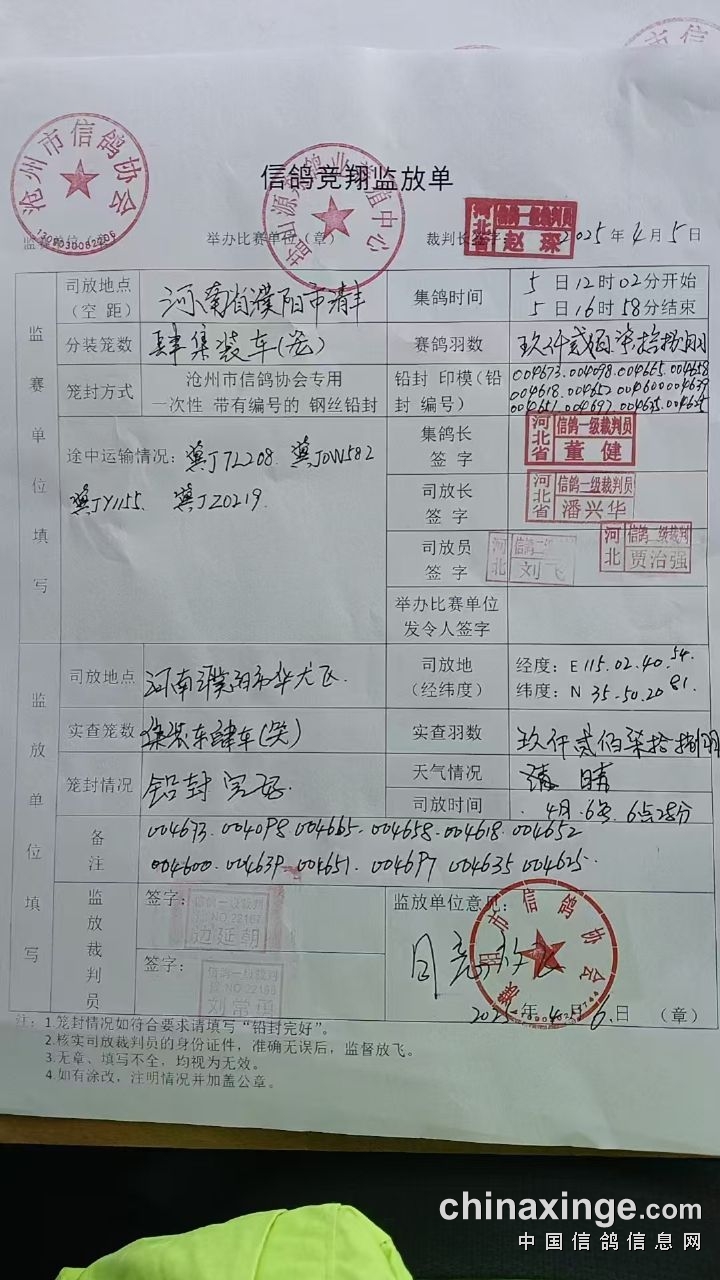 信鸽
沧州市信鸽协会
信鸽竞翔监放单
举办比赛单位（章）
裁判长签字
河北省 信鸽一级裁判员 赵琛
2025年4月5日
监赛单位填写
司放地点（空距）
河南省濮阳市清丰
集鸽时间
5日12时02分开始
5日16时58分结束
分装笼数
肆集装车(笼)
赛鸽羽数
玖仟贰佰柒拾捌羽
笼封方式
沧州市信鸽协会专用
一次性 带有编号的 钢丝铅封
铅封 印模（铅封 编号）
004673.004098.004665.004658
004618.004652 004600 004639
004651.004697.004635.004625
途中运输情况：冀J72208. 冀J0W582
冀JY1155、冀JZ0219.
集鸽长签字
河北省 信鸽一级裁判员 董健
司放长签字
河北省 信鸽一级裁判员 潘兴华
司放员签字
河北 刘飞
河北 信鸽二级裁判 贾治强
举办比赛单位
发令人签字
监放单位填写
司放地点
河南濮阳市华龙区
司放地（经纬度）
经度：E 115.02.40.54.
纬度：N 35.50.20 81.
实查笼数
集装车肆车(笼)
实查羽数
玖仟贰佰柒拾捌羽
笼封情况
铅封完好.
天气情况
晴
司放时间
4月.6日.6点28分
备注
004673.004098.004665.004658.004618.004652
004600.004639.004651.004697 004635 004625.
监放裁判员
签字：
信鸽一级裁判 边延朝
签字：
信鸽一级裁判 刘常勇
监放单位意见：
市信鸽协会
2025年4月6日 （章）
注：1.笼封情况如符合要求请填写“铅封完好”。
2.核实司放裁判员的身份证件，准确无误后，监督放飞。
3.无章、填写不全，均视为无效。
4.如有涂改，注明情况并加盖公章。
chinaxinge.com
中国信鸽信息网